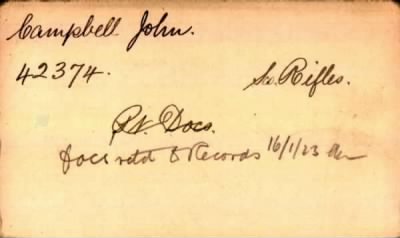 Campbell John.
42374. Sco. Rifles.
Pt. Docs.
Docs retd to Records 16/1/23